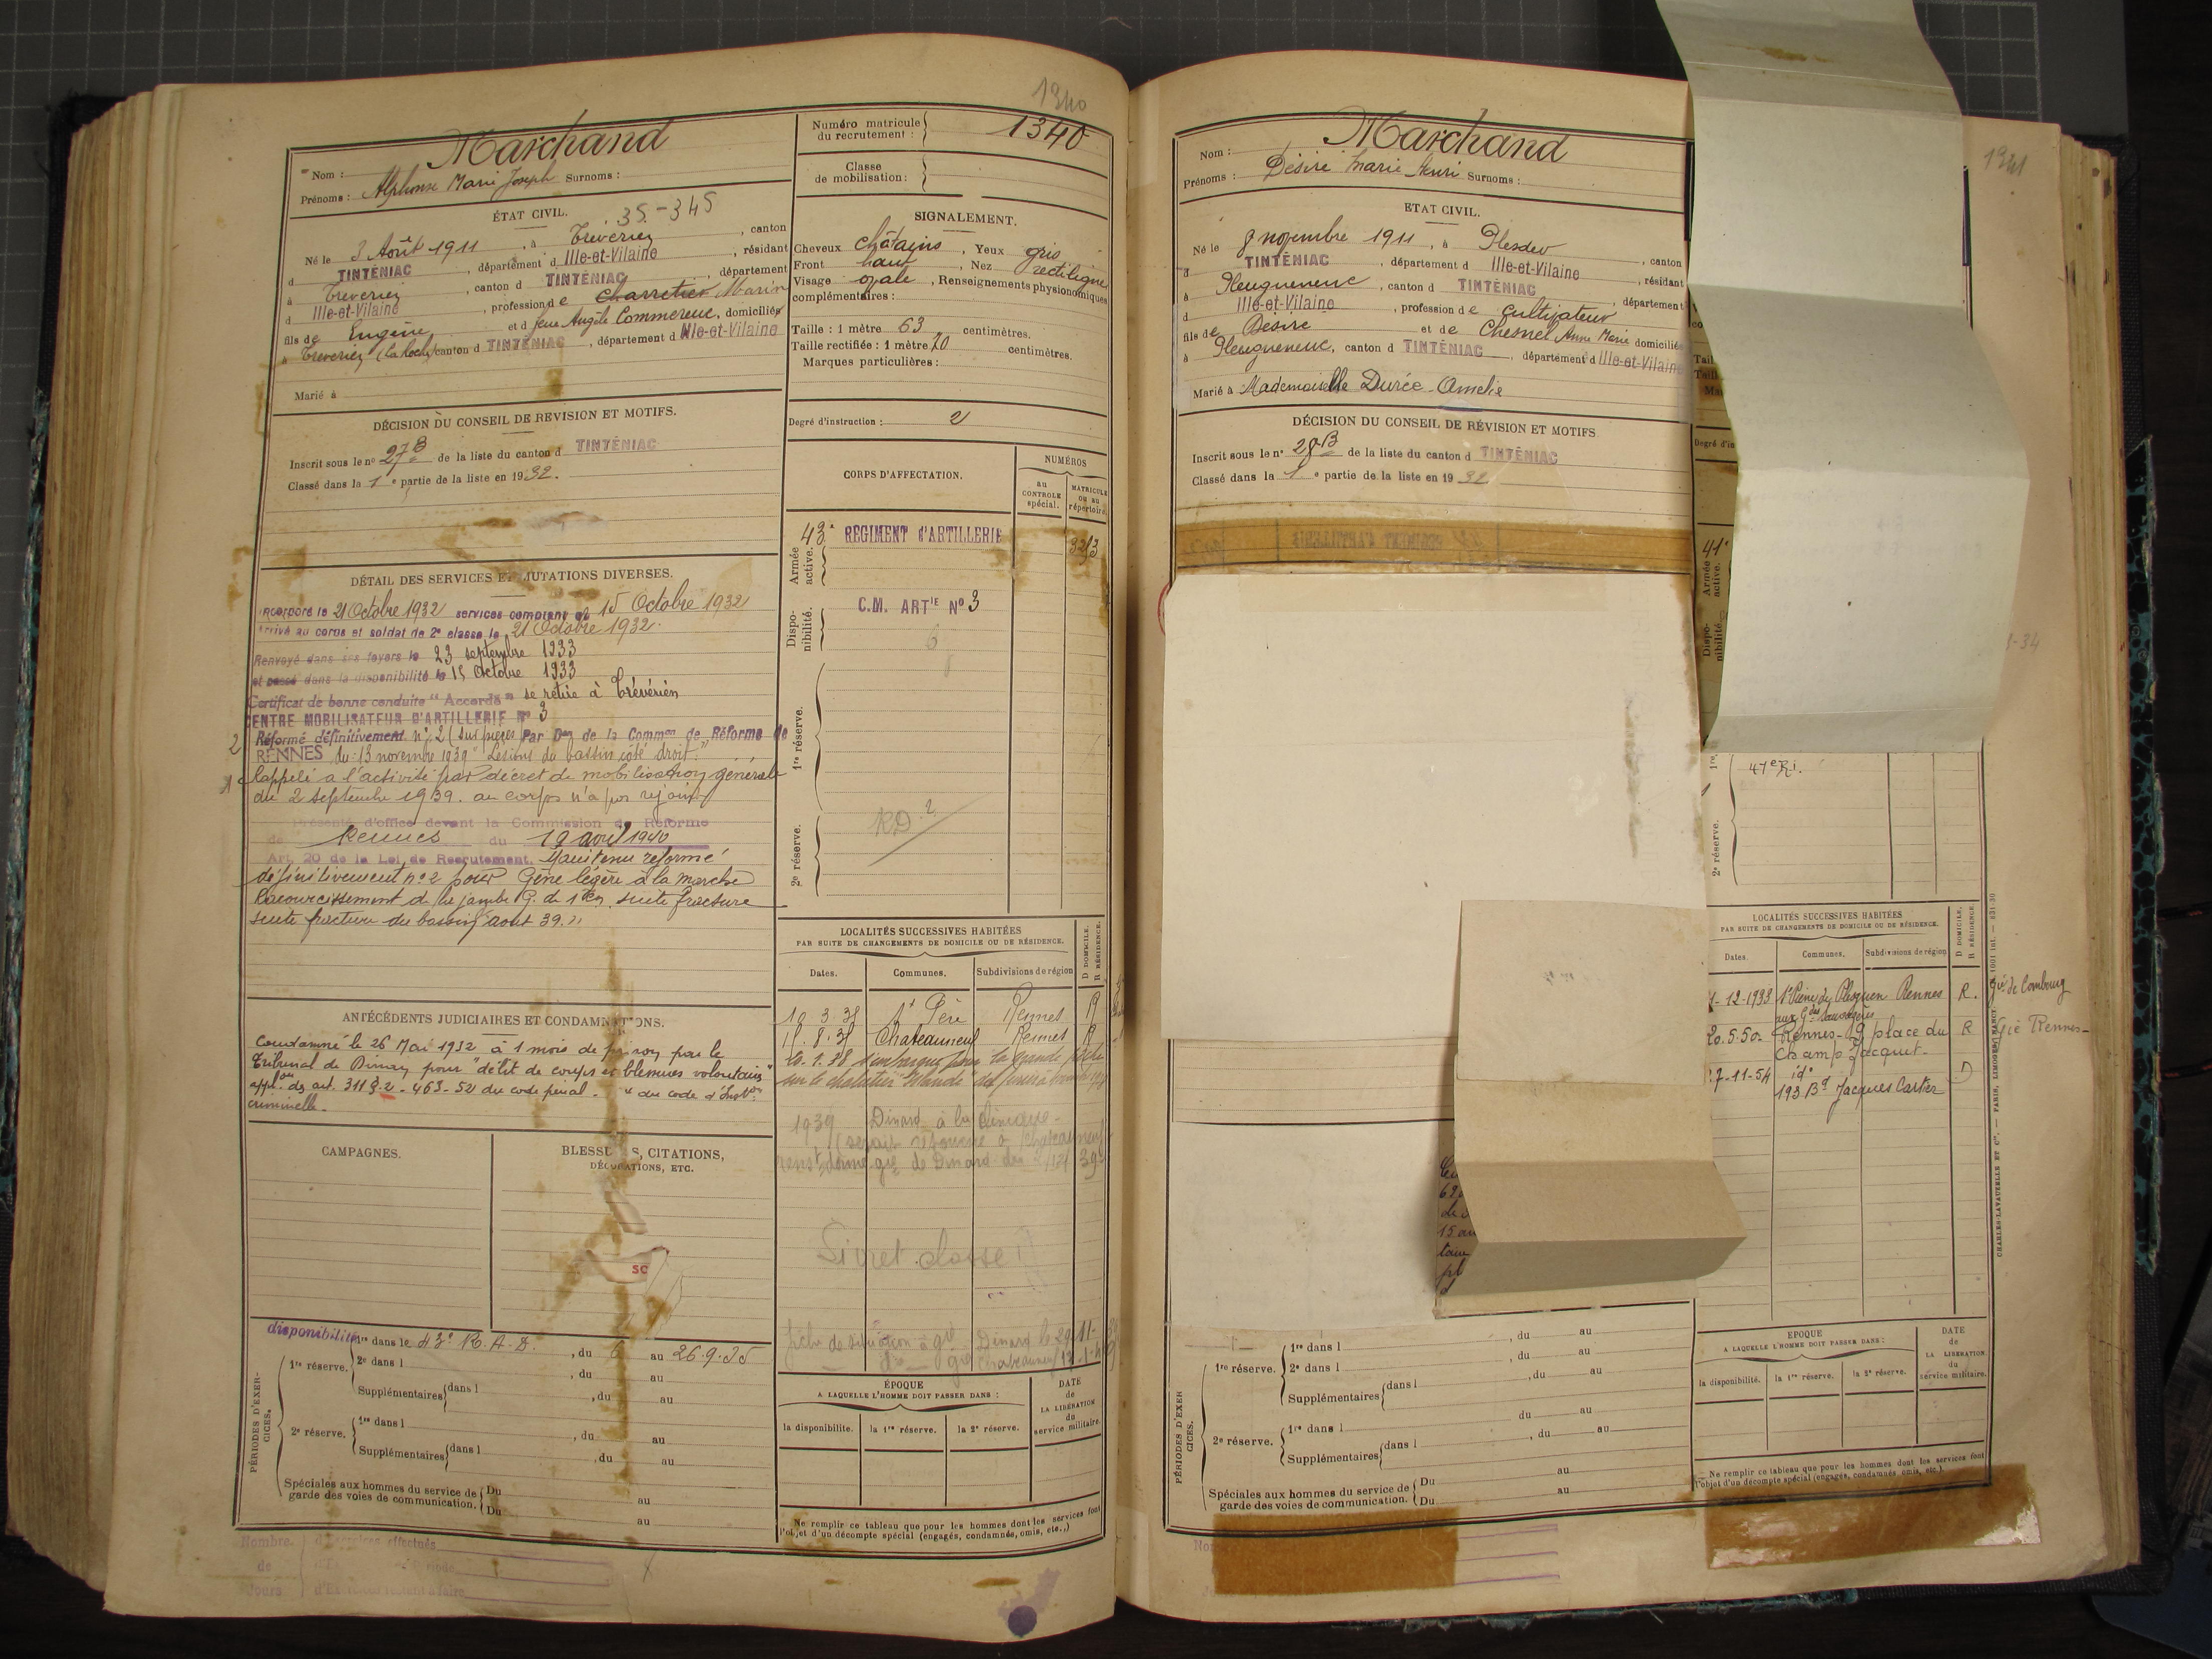 1340
Marchand
Nom :
Prénoms : Alphonse Marie Joseph Surnoms :
Numéro matricule du recrutement : 1340
Classe de mobilisation :
ÉTAT CIVIL. 35-345
Né le 3 Août 1911, à Treverien, canton
d TINTÉNIAC, département d Ille-et-Vilaine, résidant
à Treverien, canton d TINTÉNIAC, département
d Ille-et-Vilaine, profession de Charretier Marin
fils de Eugène et d feue Angèle Commereuc, domiciliés
à Treverien (La Roche) canton d TINTÉNIAC, département d Ille-et-Vilaine
Marié à
SIGNALEMENT.
Cheveux châtains, Yeux gris
Front haut, Nez rectiligne
Visage ovale, Renseignements physionomiques
complémentaires :
Taille : 1 mètre 63 centimètres.
Taille rectifiée : 1 mètre 70 centimètres.
Marques particulières :
Degré d'instruction : 2
DÉCISION DU CONSEIL DE REVISION ET MOTIFS.
Inscrit sous le n° 27 B de la liste du canton d TINTÉNIAC
Classé dans la 1e partie de la liste en 1932.
CORPS D'AFFECTATION.
NUMÉROS
au CONTROLE spécial.
MATRICULE ou au répertoire.
Armée active.
43e REGIMENT D'ARTILLERIE
3213
Disponibilité.
C.M. ARTIE N° 3
6
1re réserve.
2e réserve.
RD 2
DÉTAIL DES SERVICES ET MUTATIONS DIVERSES.
Incorporé le 21 Octobre 1932 services comptant du 15 Octobre 1932
Arrivé au corps et soldat de 2e classe le 21 Octobre 1932.
Renvoyé dans ses foyers le 23 septembre 1933
et passé dans la disponibilité le 15 Octobre 1933
Certificat de bonne conduite "Accordé" se retire à Trévérien
CENTRE MOBILISATEUR D'ARTILLERIE N° 3
2 Réformé définitivement n° 2 (sur pièces) Par Don de la Common de Réforme de
RENNES du 13 novembre 1939 "Lésions du bassin côté droit."
1 Rappelé à l'activité par décret de mobilisation générale
du 2 septembre 1939. au corps n'a pas rejoint
Présenté d'office devant la Commission de Réforme
de Rennes du 19 avril 1940
Art. 20 de la Loi de Recrutement. Maintenu réformé
définitivement n° 2 pour Gêne légère à la marche
Raccourcissement de la jambe G. de 1 cm, suite fracture
suite fracture du bassin août 39."
LOCALITÉS SUCCESSIVES HABITÉES
PAR SUITE DE CHANGEMENTS DE DOMICILE OU DE RÉSIDENCE.
D DOMICILE. R RÉSIDENCE.
Dates. Communes. Subdivisions de région
St Père Rennes R
Chateauneuf Rennes R
s'embarque pour la grande pêche
sur le chalutier
1939 Dinard à la clinique
Livret classé
ANTÉCÉDENTS JUDICIAIRES ET CONDAMNATIONS.
Condamné le 26 Mai 1932 à 1 mois de prison par le
Tribunal de Dinan pour "délit de coups et blessures volontaires"
appl. des art. 311 § 2 - 463 - 52 du code pénal - du code d'Inston
criminelle.
CAMPAGNES.
BLESSURES, CITATIONS,
DÉCORATIONS, ETC.
SC
PÉRIODES D'EXERCICES.
disponibilité
1re réserve.
1re dans le 43e R.A.D., du 6 au 26.9.35
2e dans l, du au
Supplémentaires dans l, du au
2e réserve.
1re dans l, du au
Supplémentaires dans l, du au
Spéciales aux hommes du service de garde des voies de communication. Du au
Du au
ÉPOQUE
A LAQUELLE L'HOMME DOIT PASSER DANS :
la disponibilite. la 1re réserve. la 2e réserve.
DATE de LA LIBÉRATION du service militaire.
Ne remplir ce tableau que pour les hommes dont les services font
l'objet d'un décompte spécial (engagés, condamnés, omis, etc.,)
Nombre de Jours
1341
Marchand
Nom :
Prénoms : Désiré Marie Henri Surnoms :
ETAT CIVIL.
Né le 8 novembre 1911, à Plesder, canton
d TINTÉNIAC, département d Ille-et-Vilaine, résidant
à Pleugueneuc, canton d TINTÉNIAC, département
d Ille-et-Vilaine, profession de Cultivateur
fils de Désiré et de Chesnel Anne Marie domiciliés
à Pleugueneuc, canton d TINTÉNIAC, département d Ille-et-Vilaine
Marié à Mademoiselle Durée Amélie
DÉCISION DU CONSEIL DE RÉVISION ET MOTIFS
Inscrit sous le n° 28 B de la liste du canton d TINTÉNIAC
Classé dans la 1e partie de la liste en 1932
Degré d'in
41e
Armée active.
Disponibilité.
47e R.I.
2e réserve.
LOCALITÉS SUCCESSIVES HABITÉES
PAR SUITE DE CHANGEMENTS DE DOMICILE OU DE RÉSIDENCE.
D DOMICILE. R RÉSIDENCE.
Dates. Communes. Subdivisions de région
1-12-1933 St Pierre de Plesguen Rennes R. gie de Combourg
20.5.50 Rennes - 19 place du R gie Rennes
Champ Jacquet
7-11-54 id° D
193 Bd Jacques Cartier
CHARLES-LAVAUZELLE ET Cie. — PARIS, LIMOGES, NANCY
PÉRIODES D'EXERCICES.
1re réserve.
1re dans l, du au
2e dans l, du au
Supplémentaires dans l, du au
2e réserve.
1re dans l du au
Supplémentaires dans l, du au
Spéciales aux hommes du service de garde des voies de communication. Du au
Du au
EPOQUE
A LAQUELLE L'HOMME DOIT PASSER DANS :
la disponibilité. la 1re réserve. la 2e réserve.
DATE de LA LIBÉRATION du service militaire.
Ne remplir ce tableau que pour les hommes dont les services font
l'objet d'un décompte spécial (engagés, condamnés omis, etc.).